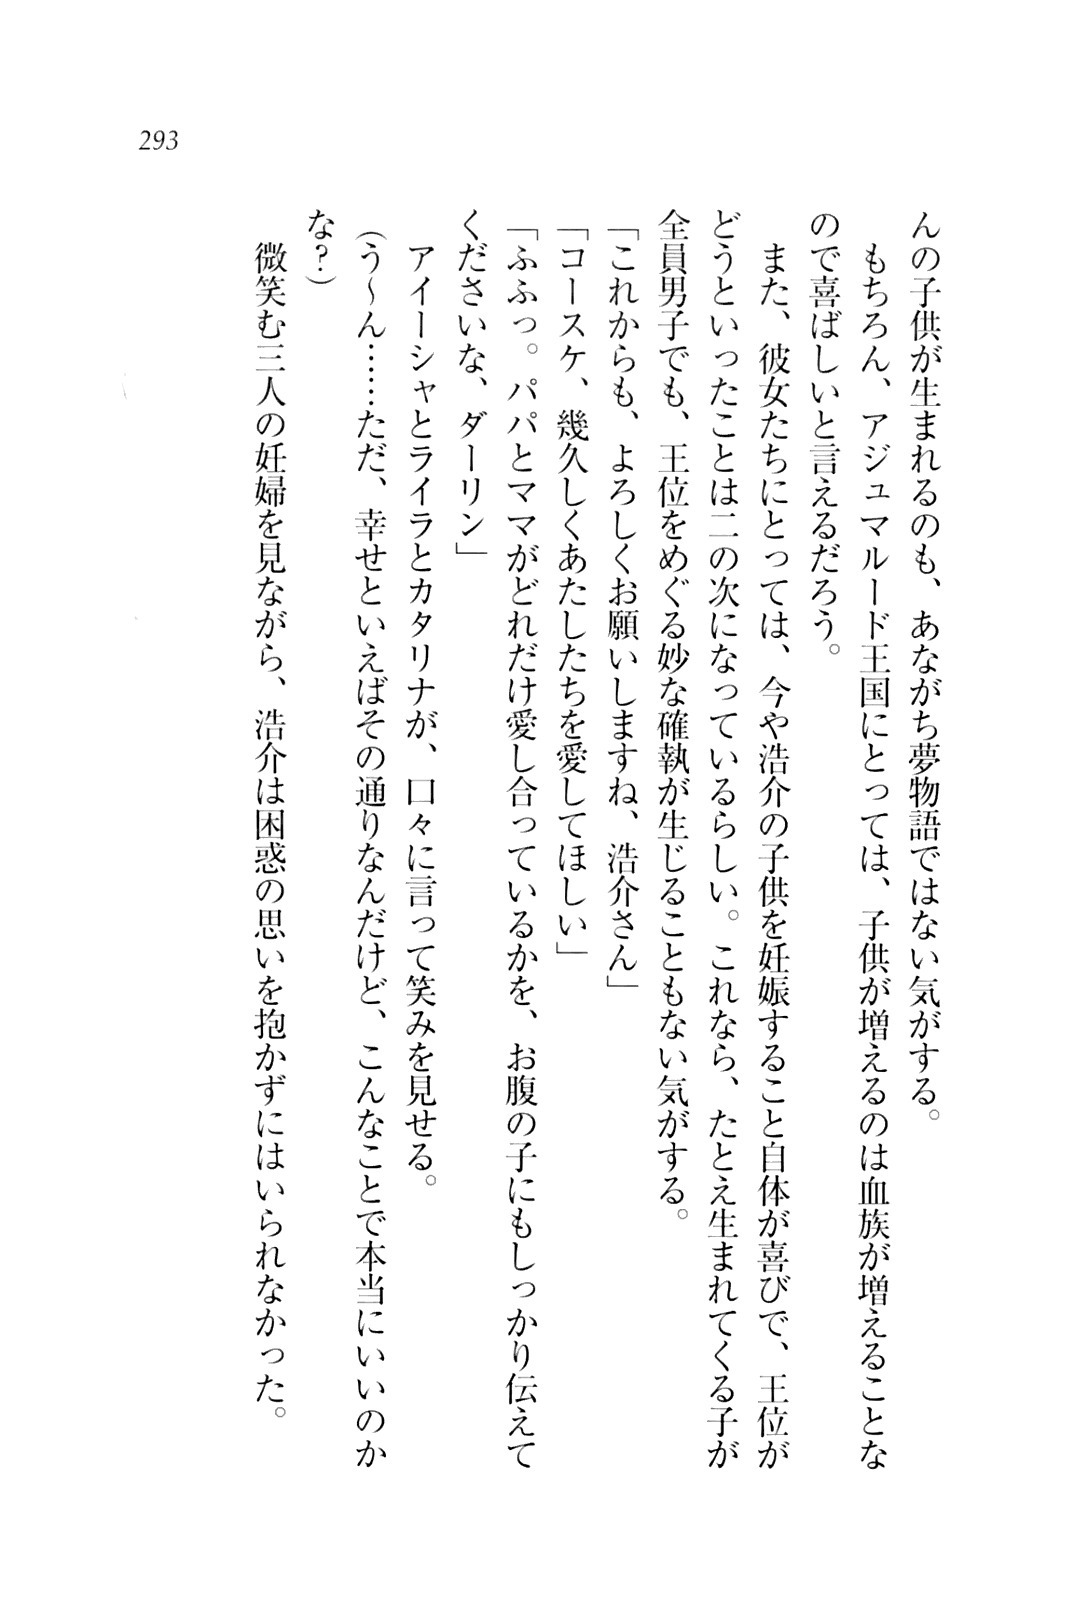 293
んの子供が生まれるのも、あながち夢物語ではない気がする。
もちろん、アジュマルード王国にとっては、子供が増えるのは血族が増えることな
ので喜ばしいと言えるだろう。
また、彼女たちにとっては、今や浩介の子供を妊娠すること自体が喜びで、王位が
どうといったことは二の次になっているらしい。これなら、たとえ生まれてくる子が
全員男子でも、王位をめぐる妙な確執が生じることもない気がする。
「これからも、よろしくお願いしますね、浩介さん」
「コースケ、幾久しくあたしたちを愛してほしい」
「ふふっ。パパとママがどれだけ愛し合っているかを、お腹の子にもしっかり伝えて
くださいな、ダーリン」
アイーシャとライラとカタリナが、口々に言って笑みを見せる。
(う〜ん……ただ、幸せといえばその通りなんだけど、こんなことで本当にいいのか
な?)
微笑む三人の妊婦を見ながら、浩介は困惑の思いを抱かずにはいられなかった。